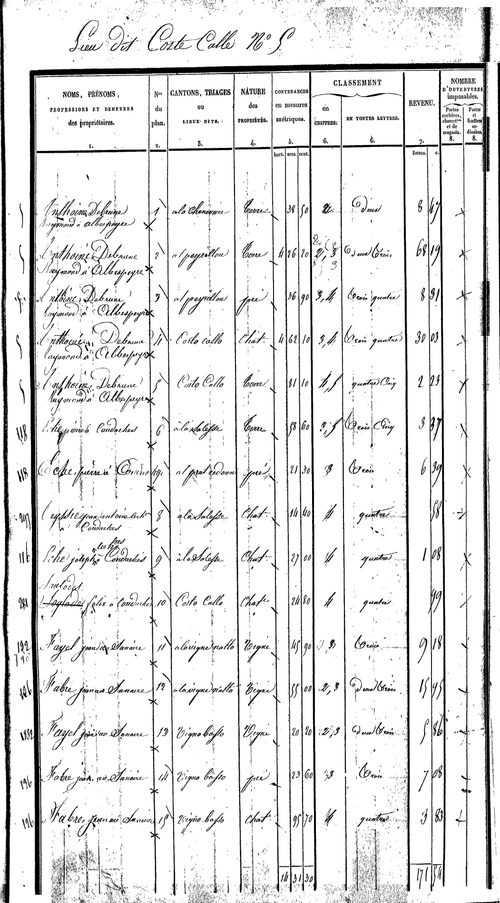 Lieu dit Coste Calle N° 5
NOMS, PRÉNOMS, PROFESSIONS ET DEMEURES des propriétaires. 1.
Nos du plan. 2.
CANTONS, TRIAGES ou LIEUX-DITS. 3.
NATURE des PROPRIÉTÉS. 4.
CONTENANCES en mesures métriques. 5.
CLASSEMENT
en CHIFFRES. 6.
EN TOUTES LETTRES. 6.
REVENU. 7.
NOMBRE D'OUVERTURES imposables.
Portes cochères, charretières et de magasin. 8.
Portes et fenêtres ordinaires. 8.
hect. ares cent.
francs. c.
5 Anthoine Debrune 1 a la Chenevière Terre 38 50 2 Deux 8 47
Raymond à Albespeyre
5 Anthoine Debrune 2 al peyrillou Terre 4 26 20 2, 3 Deux Trois 68 19
Raymond à Albespeyre
5 Anthoine Debrune 3 al peyrillou pré 36 90 3, 4 Trois quatre 8 31
Raymond à Albespeyre
5 Anthoine Debrune 4 Costo Callo Chat 4 62 10 3, 4 Trois quatre 30 03
Raymond à Albespeyre
5 Anthoine Debrune 5 Costo Callo Terre 81 10 4, 5 quatre Cinq 2 23
Raymond à Albespeyre
118 Eche pierre à Conduches 6 à la Salesse Terre 58 60 3, 5 Trois Cinq 3 37
118 Eche pierre à 7 al prat redoun pré 21 30 3 Trois 6 39
8 à la Salesse Chat 14 40 4 quatre 58
à Conduches
116 Eche joseph à Conduches 9 à la Salesse Chat 27 00 4 quatre 1 08
281 felix à Conduches 10 Costo Callo Chat 24 80 4 quatre 99
Fayel jean au Sanaire 11 a la vigne nalto Vigne 45 90 3 Trois 9 18
126 Fabre jean au Sanaire 12 a la vigne nalto Vigne 55 00 2, 3 Deux Trois 15 95
Fayel jean au Sanaire 13 Vigno basso Vigne 20 20 2, 3 Deux Trois 5 86
126 Fabre jean au Sanaire 14 Vigno basso pré 23 60 3 Trois 7 08
126 Fabre jean au Sanaire 15 Vigno basso Chat 95 70 4 quatre 3 83
14 31 30 171 54